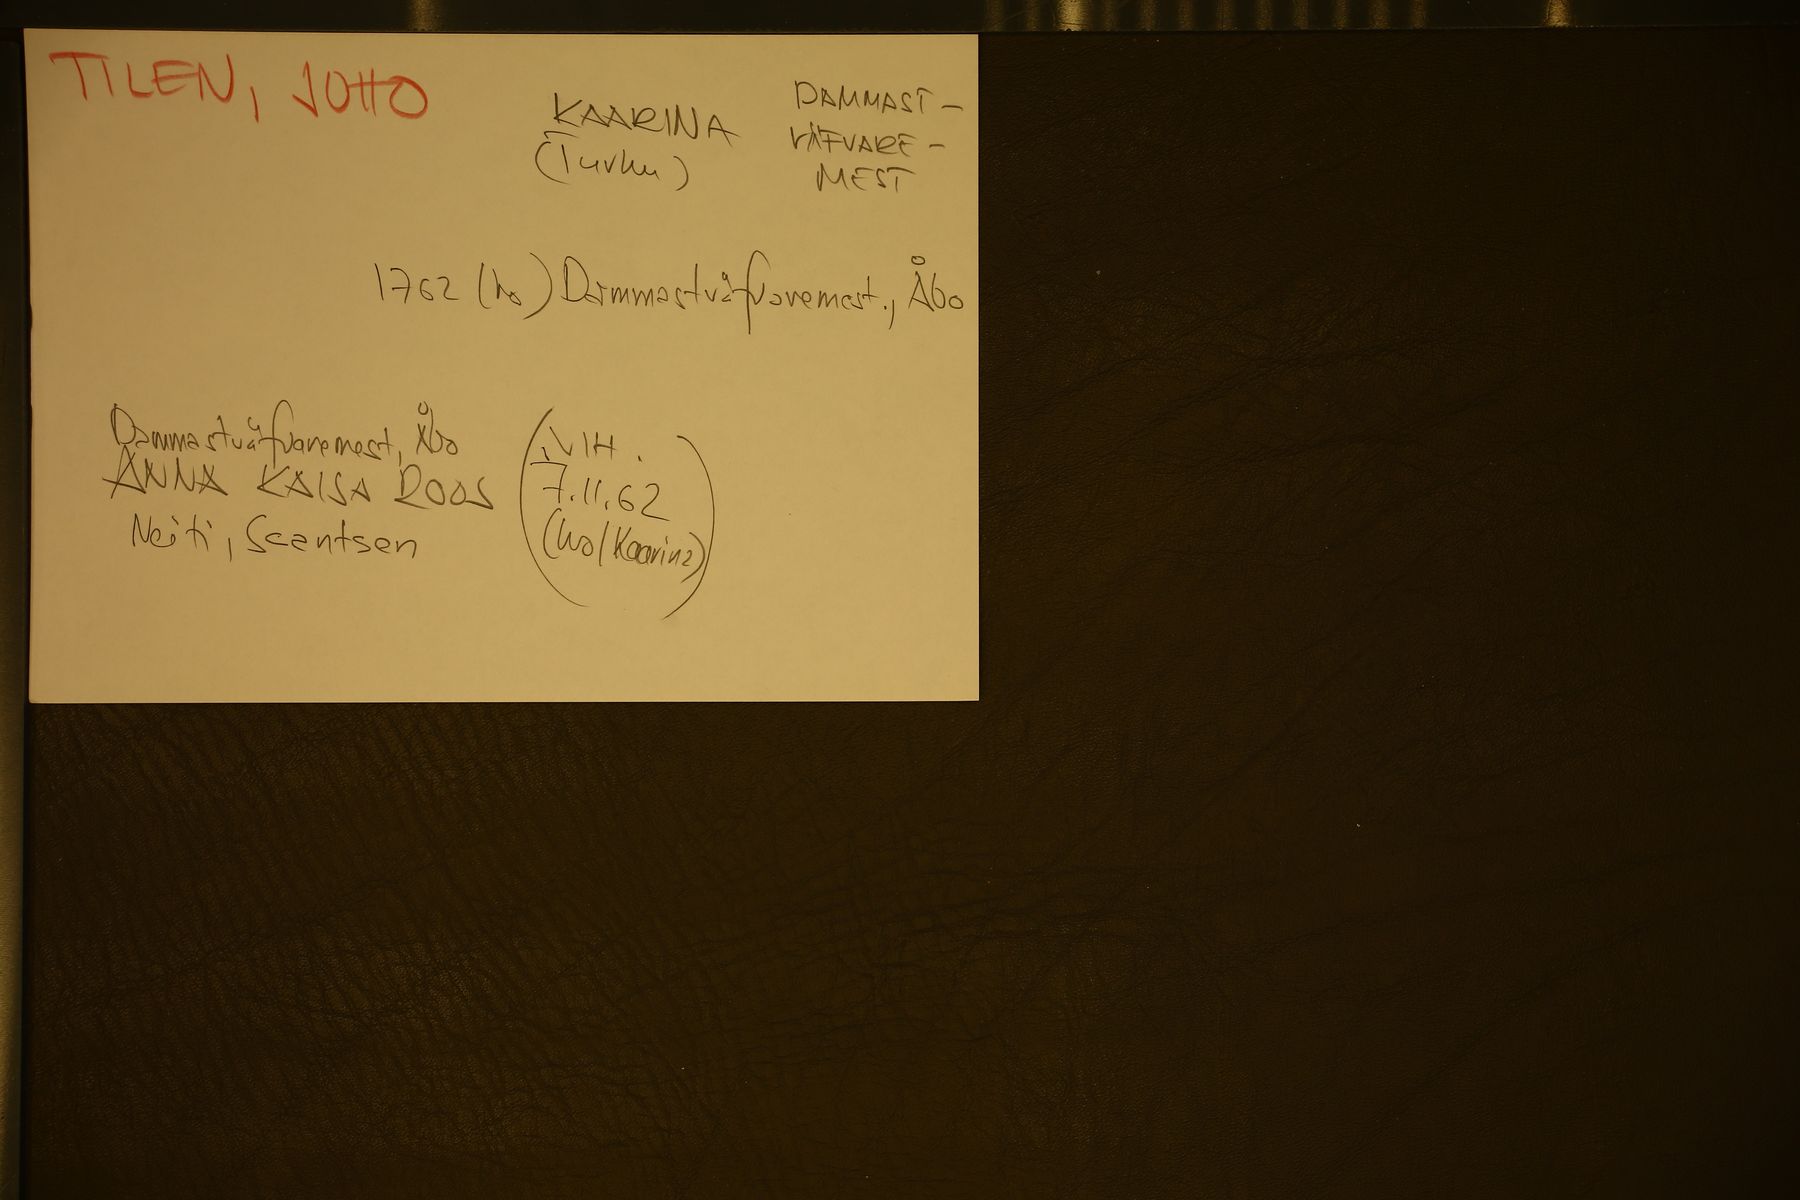 TILEN, JOHO
KAARINA
(Turku)
DAMMAST-
VÄFVARE-
MEST
1762 (ko) Dammastväfvaremest., Åbo
Dammastväfvaremest, Åbo
ANNA KAISA ROOS
Neiti, Scentsen
VIH.
7.11.62
(ko/Kaarina)